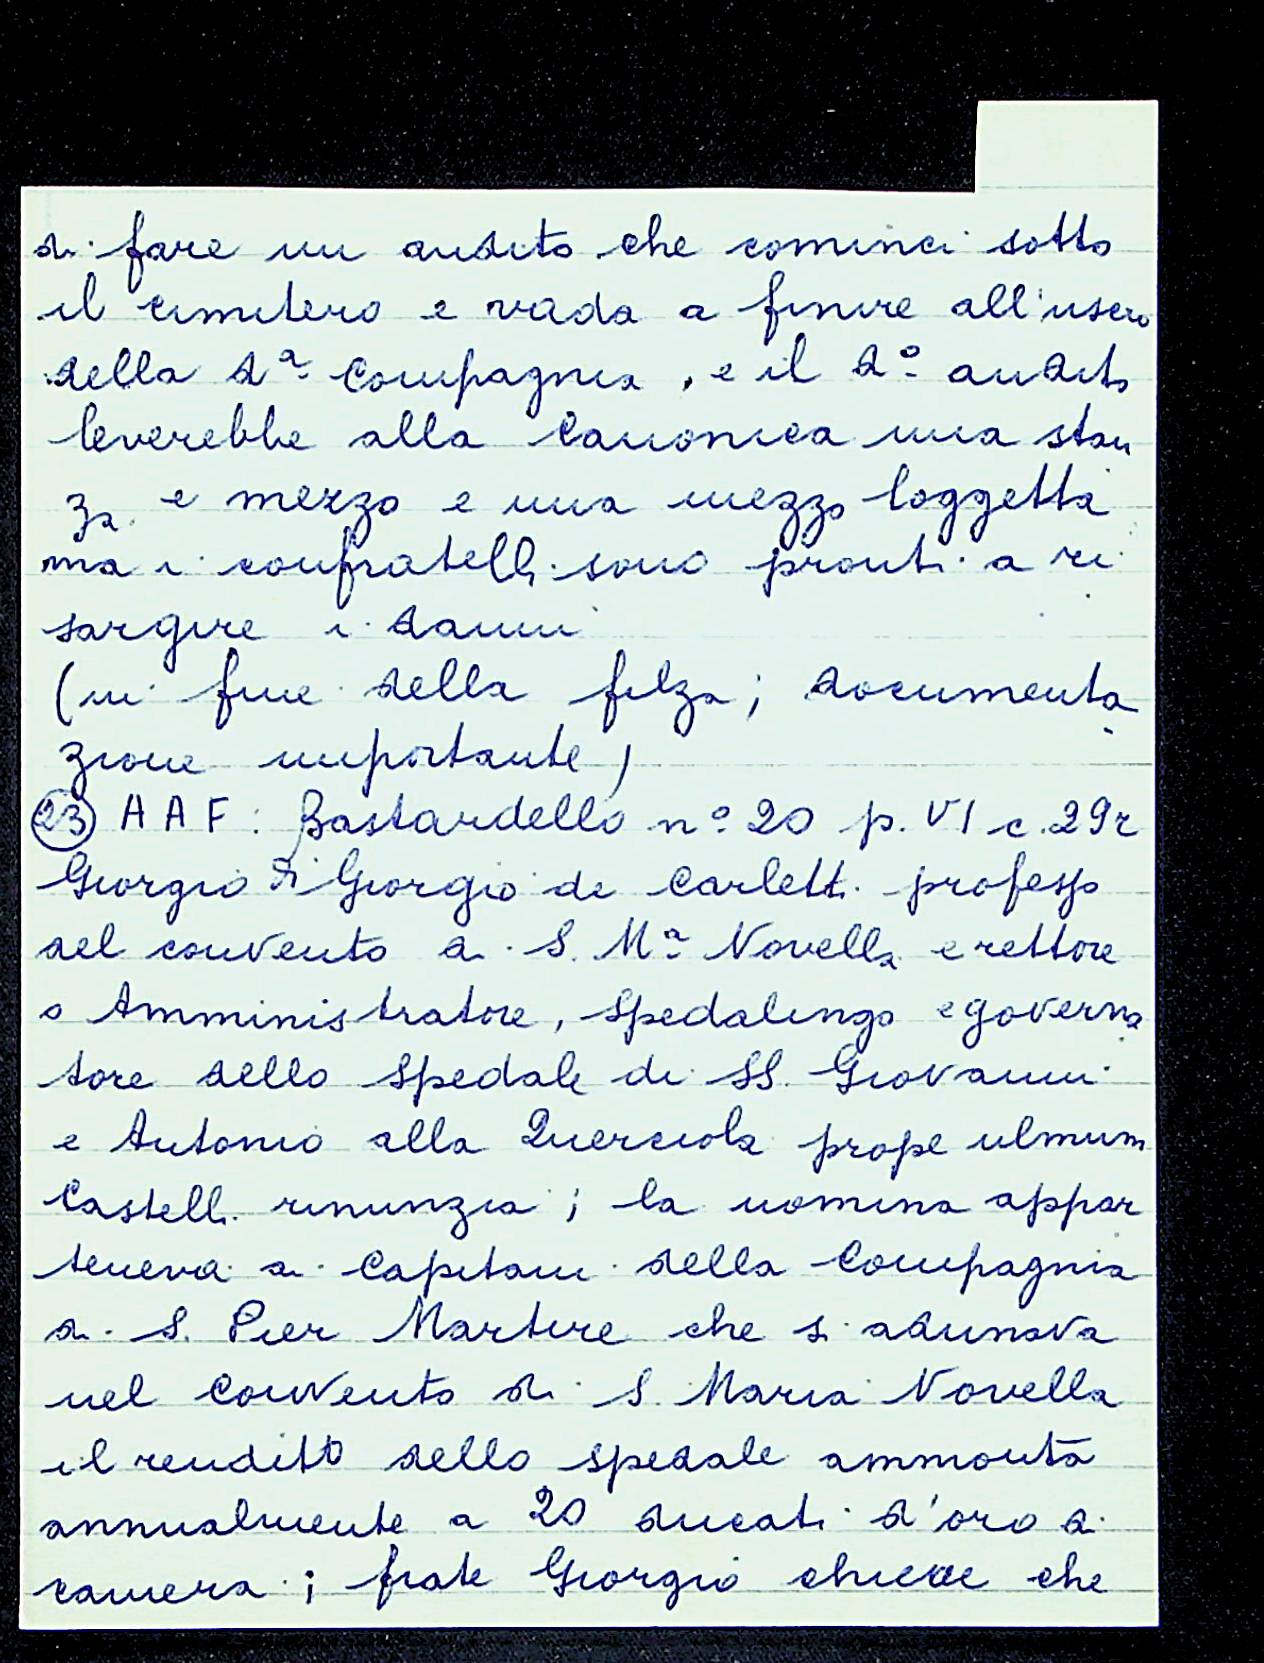 di fare un andito che cominci sotto
il cimitero e vada a finire all'uscio
della 2ª Compagnia, e il 2º andito
leverebbe alla Canonica una stan
za e mezzo e una mezzo loggetta
ma i confratelli sono pronti a ri
sargire i danni
(in fine della filza; documenta
zione importante)
23 AAF: Bastardello nº 20 p. VI c. 29r
Giorgio di Giorgio de Carletti professo
del convento di S. Mª Novella e rettore
o Amministratore, spedalingo e governa
tore dello spedale di SS. Giovanni
e Antonio alla Querciola prope ulmum
Castelli rinunzia; la nomina appar
teneva ai Capitani della Compagnia
di S. Pier Martire che si adunava
nel convento di S. Maria Novella
il rendito dello spedale ammonta
annualmente a 20 ducati d'oro di
camera; frate Giorgio chiede che